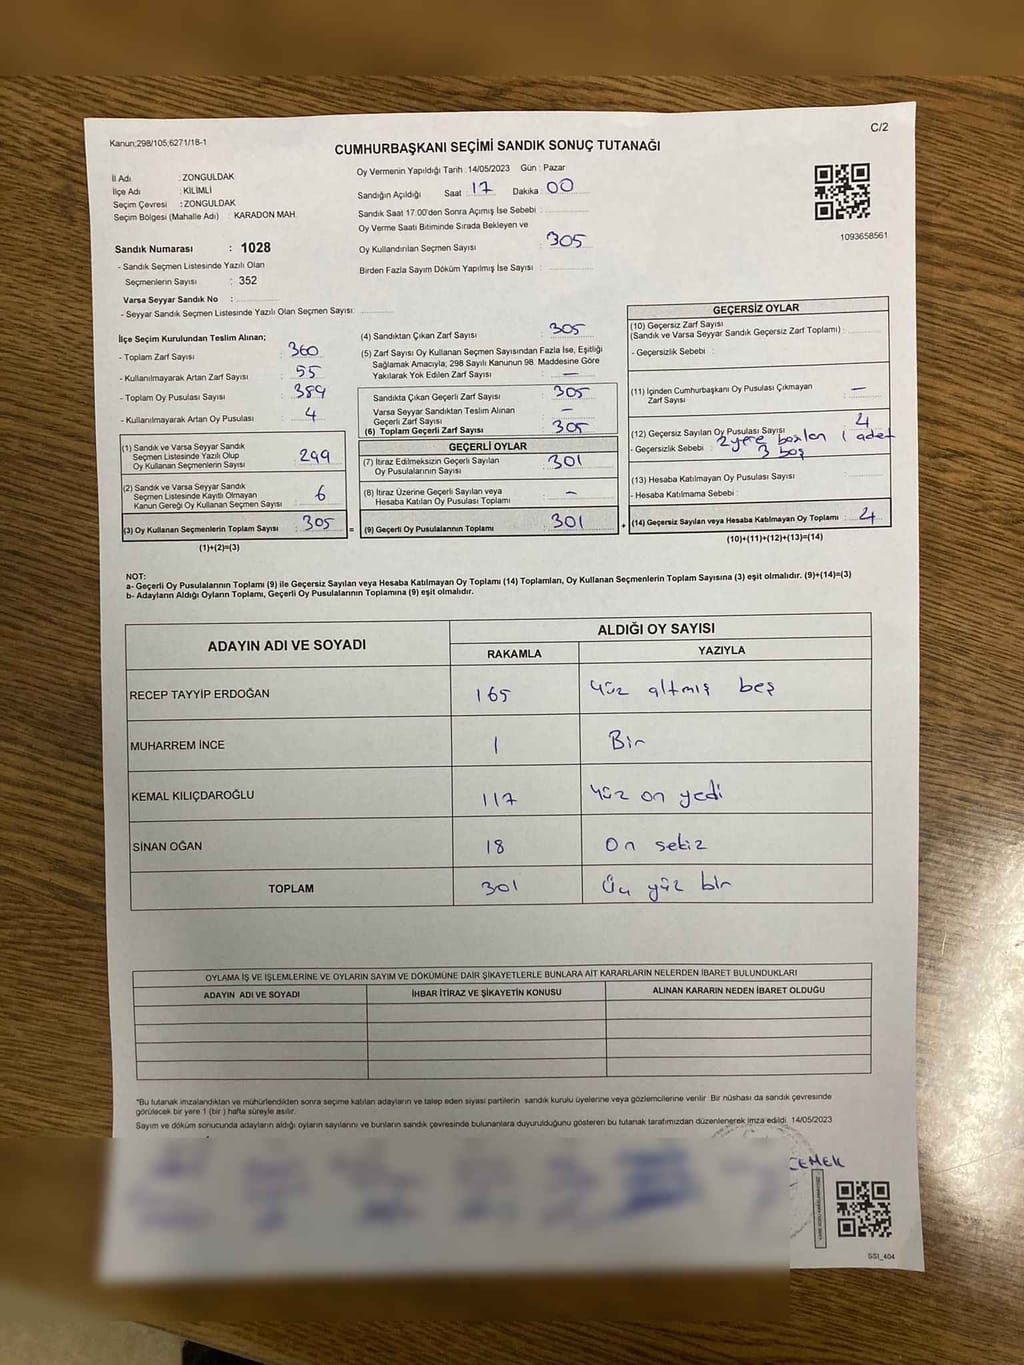 Kanun;298/105,6271/18-1
C/2
CUMHURBAŞKANI SEÇİMİ SANDIK SONUÇ TUTANAĞI
İl Adı : ZONGULDAK
İlçe Adı : KİLİMLİ
Seçim Çevresi : ZONGULDAK
Seçim Bölgesi (Mahalle Adı) : KARADON MAH.
Sandık Numarası : 1028
- Sandık Seçmen Listesinde Yazılı Olan
Seçmenlerin Sayısı : 352
Varsa Seyyar Sandık No :
- Seyyar Sandık Seçmen Listesinde Yazılı Olan Seçmen Sayısı:
Oy Vermenin Yapıldığı Tarih : 14/05/2023 Gün : Pazar
Sandığın Açıldığı Saat : 17 Dakika : 00
Sandık Saat 17:00'den Sonra Açımış İse Sebebi :
Oy Verme Saati Bitiminde Sırada Bekleyen ve
Oy Kullandırılan Seçmen Sayısı : 305
Birden Fazla Sayım Döküm Yapılmış İse Sayısı :
1093658561
İlçe Seçim Kurulundan Teslim Alınan;
- Toplam Zarf Sayısı : 360
- Kullanılmayarak Artan Zarf Sayısı : 55
- Toplam Oy Pusulası Sayısı : 389
- Kullanılmayarak Artan Oy Pusulası : 4
(1) Sandık ve Varsa Seyyar Sandık
Seçmen Listesinde Yazılı Olup
Oy Kullanan Seçmenlerin Sayısı : 299
(2) Sandık ve Varsa Seyyar Sandık
Seçmen Listesinde Kayıtlı Olmayan
Kanun Gereği Oy Kullanan Seçmen Sayısı : 6
(3) Oy Kullanan Seçmenlerin Toplam Sayısı : 305 =
(1)+(2)=(3)
(4) Sandıktan Çıkan Zarf Sayısı : 305
(5) Zarf Sayısı Oy Kullanan Seçmen Sayısından Fazla İse, Eşitliği
Sağlamak Amacıyla; 298 Sayılı Kanunun 98. Maddesine Göre
Yakılarak Yok Edilen Zarf Sayısı : —
Sandıkta Çıkan Geçerli Zarf Sayısı : 305
Varsa Seyyar Sandıktan Teslim Alınan
Geçerli Zarf Sayısı : —
(6) Toplam Geçerli Zarf Sayısı : 305
GEÇERLİ OYLAR
(7) İtiraz Edilmeksizin Geçerli Sayılan
Oy Pusulalarının Sayısı : 301
(8) İtiraz Üzerine Geçerli Sayılan veya
Hesaba Katılan Oy Pusulası Toplamı : —
(9) Geçerli Oy Pusulalarının Toplamı : 301 +
GEÇERSİZ OYLAR
(10) Geçersiz Zarf Sayısı
(Sandık ve Varsa Seyyar Sandık Geçersiz Zarf Toplamı) :
- Geçersizlik Sebebi :
(11) İçinden Cumhurbaşkanı Oy Pusulası Çıkmayan
Zarf Sayısı : —
(12) Geçersiz Sayılan Oy Pusulası Sayısı : 4
- Geçersizlik Sebebi : 2 yere basılan 1 adet
3 boş
(13) Hesaba Katılmayan Oy Pusulası Sayısı :
- Hesaba Katılmama Sebebi :
(14) Geçersiz Sayılan veya Hesaba Katılmayan Oy Toplamı : 4
(10)+(11)+(12)+(13)=(14)
NOT:
a- Geçerli Oy Pusulalarının Toplamı (9) ile Geçersiz Sayılan veya Hesaba Katılmayan Oy Toplamı (14) Toplamları, Oy Kullanan Seçmenlerin Toplam Sayısına (3) eşit olmalıdır. (9)+(14)=(3)
b- Adayların Aldığı Oyların Toplamı, Geçerli Oy Pusulalarının Toplamına (9) eşit olmalıdır.
ADAYIN ADI VE SOYADI ALDIĞI OY SAYISI
RAKAMLA YAZIYLA
RECEP TAYYİP ERDOĞAN 165 Yüz altmış beş
MUHARREM İNCE 1 Bir
KEMAL KILIÇDAROĞLU 117 Yüz on yedi
SİNAN OĞAN 18 On sekiz
TOPLAM 301 Üç yüz bir
OYLAMA İŞ VE İŞLEMLERİNE VE OYLARIN SAYIM VE DÖKÜMÜNE DAİR ŞİKAYETLERLE BUNLARA AİT KARARLARIN NELERDEN İBARET BULUNDUKLARI
ADAYIN ADI VE SOYADI İHBAR İTİRAZ VE ŞİKAYETİN KONUSU ALINAN KARARIN NEDEN İBARET OLDUĞU
*Bu tutanak imzalandıktan ve mühürlendikten sonra seçime katılan adayların ve talep eden siyasi partilerin sandık kurulu üyelerine veya gözlemcilerine verilir. Bir nüshası da sandık çevresinde
görülecek bir yere 1 (bir ) hafta süreyle asılır.
Sayım ve döküm sonucunda adayların aldığı oyların sayılarını ve bunların sandık çevresinde bulunanlara duyurulduğunu gösteren bu tutanak tarafımızdan düzenlenerek imza edildi. 14/05/2023
SSI_404